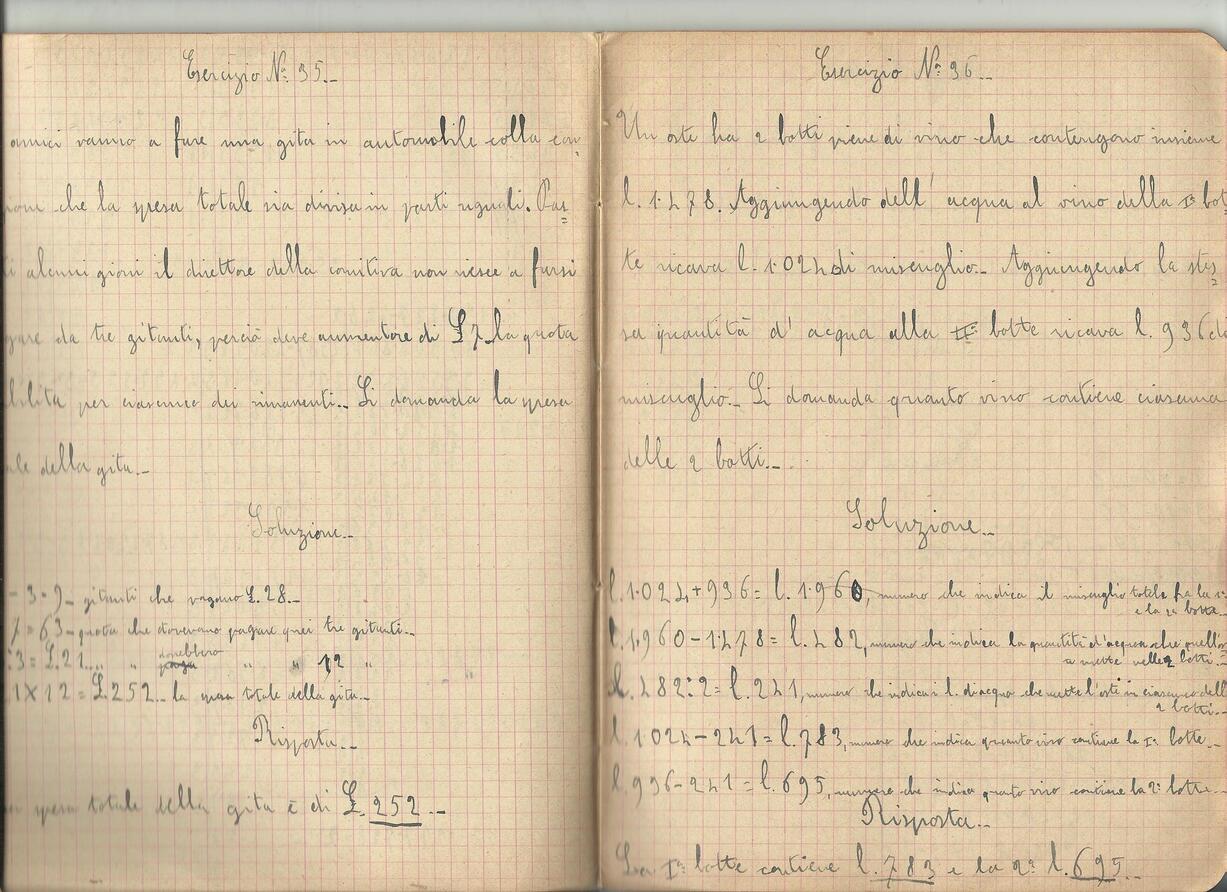 Esercizio Nº 35.-
amici vanno a fare una gita in automobile colla con=
che la spesa totale sia divisa in parti uguali. Pas=
alcuni giorni il direttore della comitiva non riesce a farsi
da tre gitanti, perciò deve aumentare di £7 la quota
per ciascuno dei rimanenti.- Si domanda la spesa
della gita.-
Soluzione.-
-3=9- gitanti che pagano £.28.-
7=63- quota che dovevano pagare quei tre gitanti.-
:3=£.21.. " " dovrebbero " " 12 "
1x12=£.252.- la spesa totale della gita.-
Risposta.-
spesa totale della gita è di £.252.-
Esercizio Nº 36.-
Un oste ha 2 botti piene di vino che contengono insieme
l.1478. Aggiungendo dell'acqua al vino della Iª bot
te ricava l.1024 di miscuglio.- Aggiungendo la stes=
sa quantità d'acqua alla IIª botte ricava l.936 di
miscuglio.- Si domanda quanto vino contiene ciascuna
delle 2 botti.-
Soluzione.-
l.1024+936=l.1960, numero che indica il miscuglio totale fra la 1ª
e la 2ª botte.-
l.1960-1478=l.482, numero che indica la quantità d'acqua che quell'oste
mette nelle 2 botti.-
l.482:2=l.241, numero che indica i l. di acqua che mette l'oste in ciascuno delle
2 botti.-
l.1024-241=l.783, numero che indica quanto vino contiene la Iª botte.-
l.936-241=l.695, numero che indica quanto vino contiene la 2ª botte.-
Risposta.-
La Iª botte contiene l.783 e la 2ª l.695.-